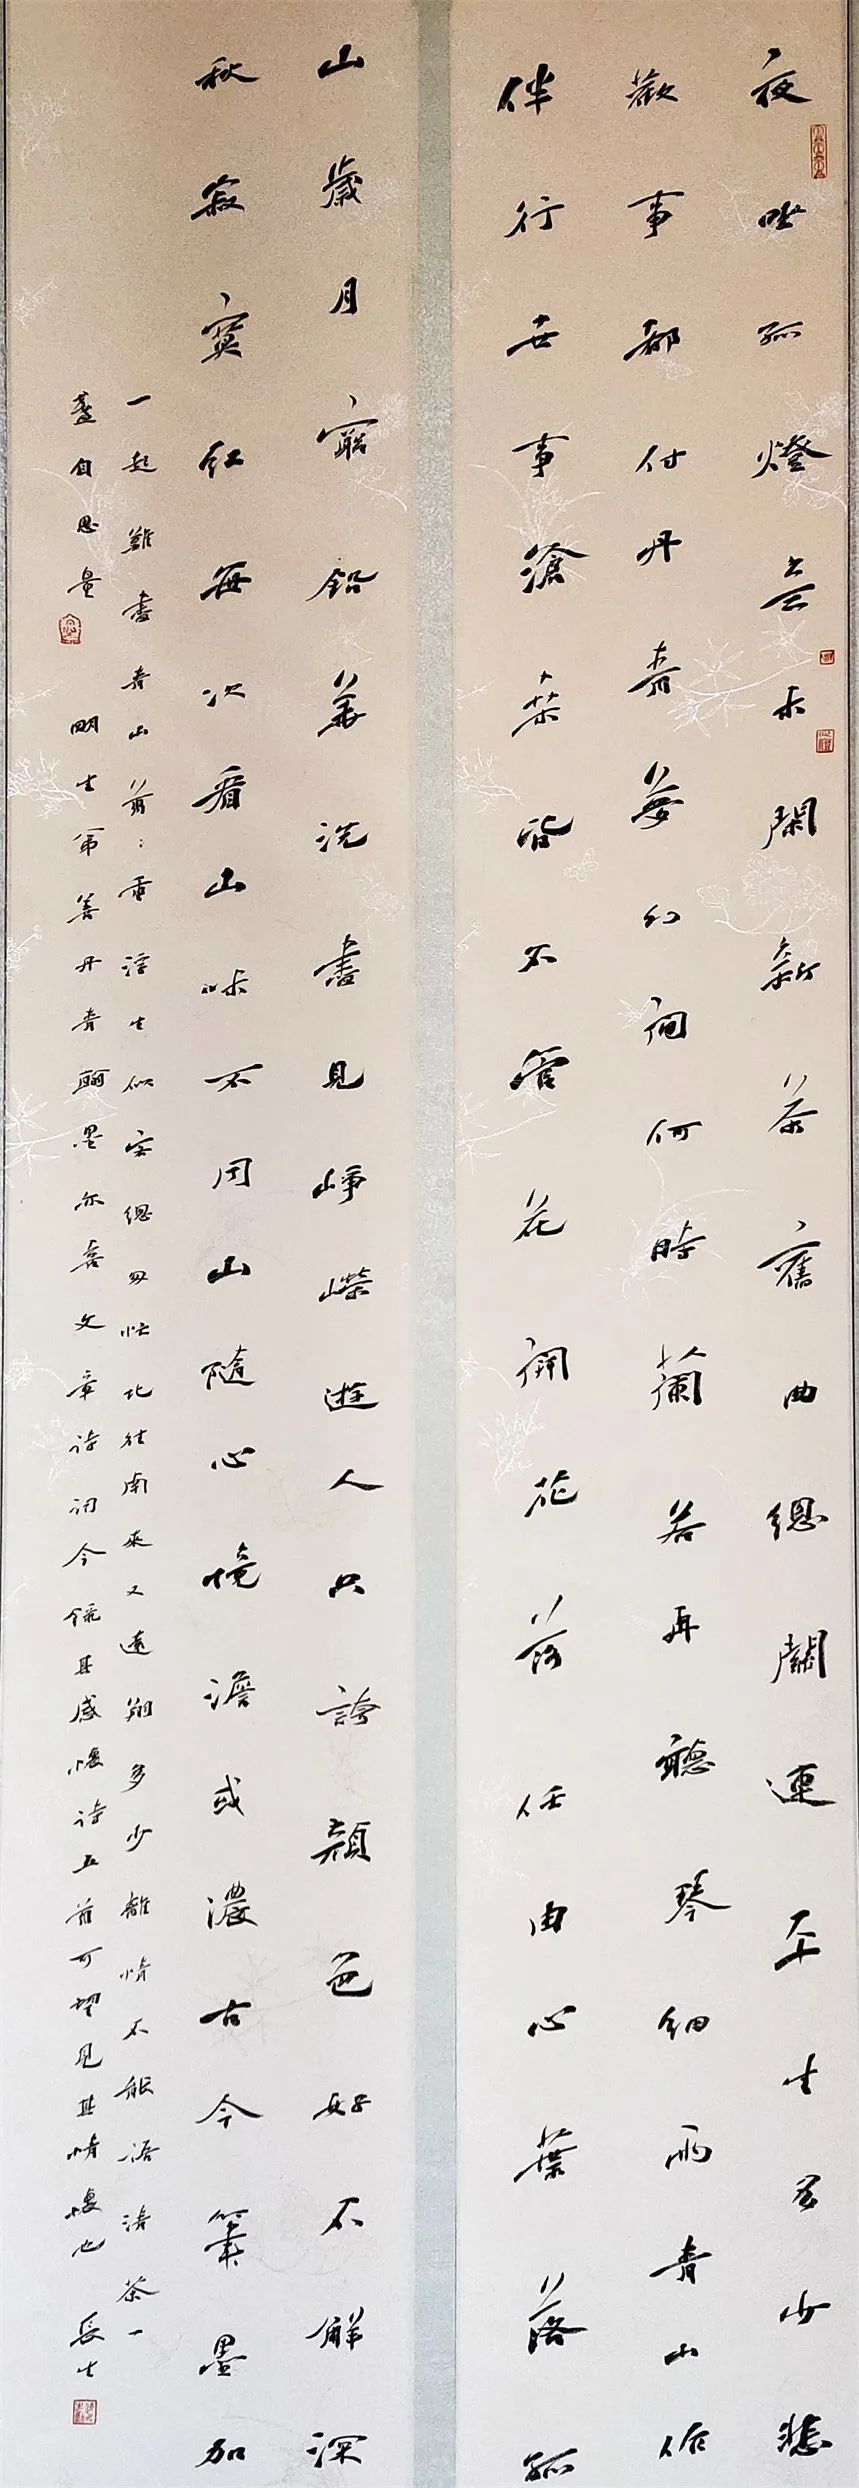 夜坐孤燈亦未閑新茶舊曲總關連平生多少悲
歡事都付丹青夢幻間何時蘭若再聽琴細雨青山作
伴行世事滄桑皆不管花開花落任由心葉落孤
山歲月窮鉛華洗盡見崢嶸遊人只誇顏色好不解深
秋寂寞紅每次看山味不同山隨心境澹或濃古今筆墨加
一起難盡青山前前重浮生似客總匆忙北往南來又遠翔多少離情不能語清茶一
盞自思量 明生弟善丹青翰墨亦喜文章詩詞今錄其感懷詩五首可望見其情懷也 長生